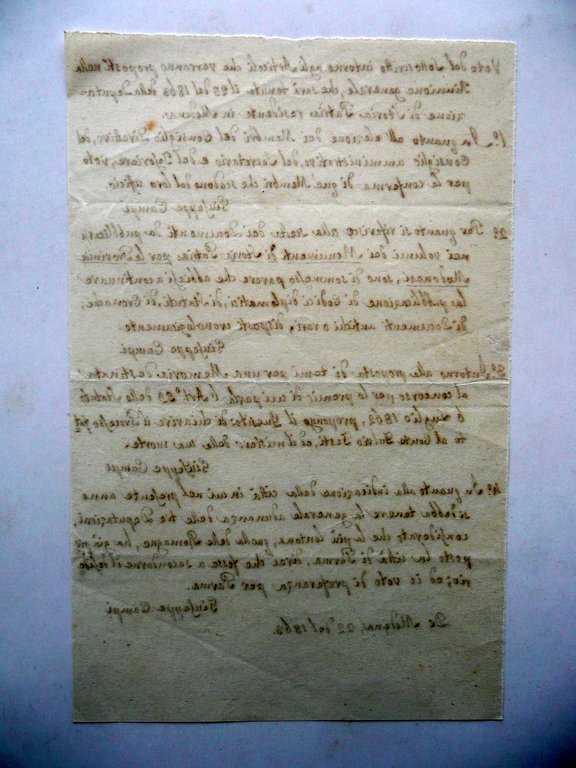 Voto del Sottoscritto intorno agli Articoli che verranno proposti nella
Riunione generale, che sarà tenuta il 23 del 1863 della Deputa-
zione di Storia Patria residente in Modena.
1.° In quanto all'elezione dei Membri del Consiglio Direttivo, del
Consiglio amministrativo, del Secretario e del Tesoriere, voto
per la conferma di que' Membri che scadono dal loro uficio.
Giuseppe Campi
2.° Per quanto si riferisce alla scelta dei Documenti da publicarsi
nei volumi dei Monumenti di Storia Patria per le Provincie
Modonesi, sono di sommesso parere che abbiasi a continuare
la pubblicazione di Codici diplomatici, di Statuti, di Cronache,
di Documenti antichi o rari, disposti cronologicamente.
Giuseppe Campi
3.° Intorno alla proposta di temi per una Memoria destinata
al concorso per lo premio di cui parla l'Art.° 23 dello Statuto
6 Luglio 1862, propongo il Quesito: di chiarire il Processo
to al Conte Fulvio Testi, ed il mistero della sua morte.
Giuseppe Campi
4.° In quanto alla indicazione della città in cui nel presente anno
si debba tenere la generale adunanza delle tre Deputazioni,
considerato che la più lontana, quella delle Romagne, ha già
posto la città di Parma, direi che fosse a secondarne il deside-
rio; ed io voto di preferenza per Parma.
Giuseppe Campi
Di Modena, 22 del 1863.